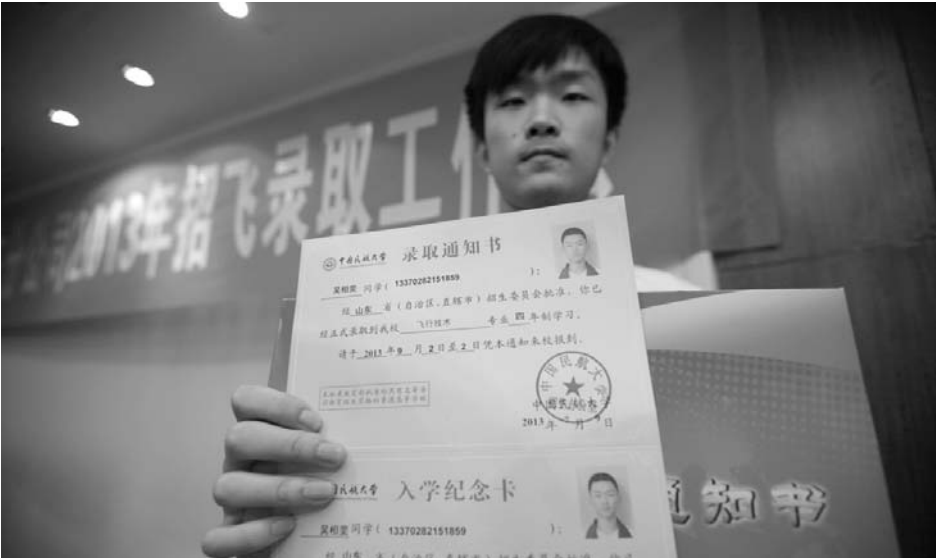 公司2013年招飞录取工作
中国民航大学 录取通知书
吴相昊 同学( 13370282151859 ):
经 山东 省(自治区、直辖市)招生委员会批准,你已
经正式录取到我校 飞行技术 专业 四 年制学习。
请于 2013 年 9 月 2 日至 2 日凭本通知来校报到。
中国民航大学
2013 年 7 月 9 日
中国民航大学 入学纪念卡
吴相昊 同学( 13370282151859 ):
经 山东 省(自治区、直辖市)招生委员会批准,你已
通知书